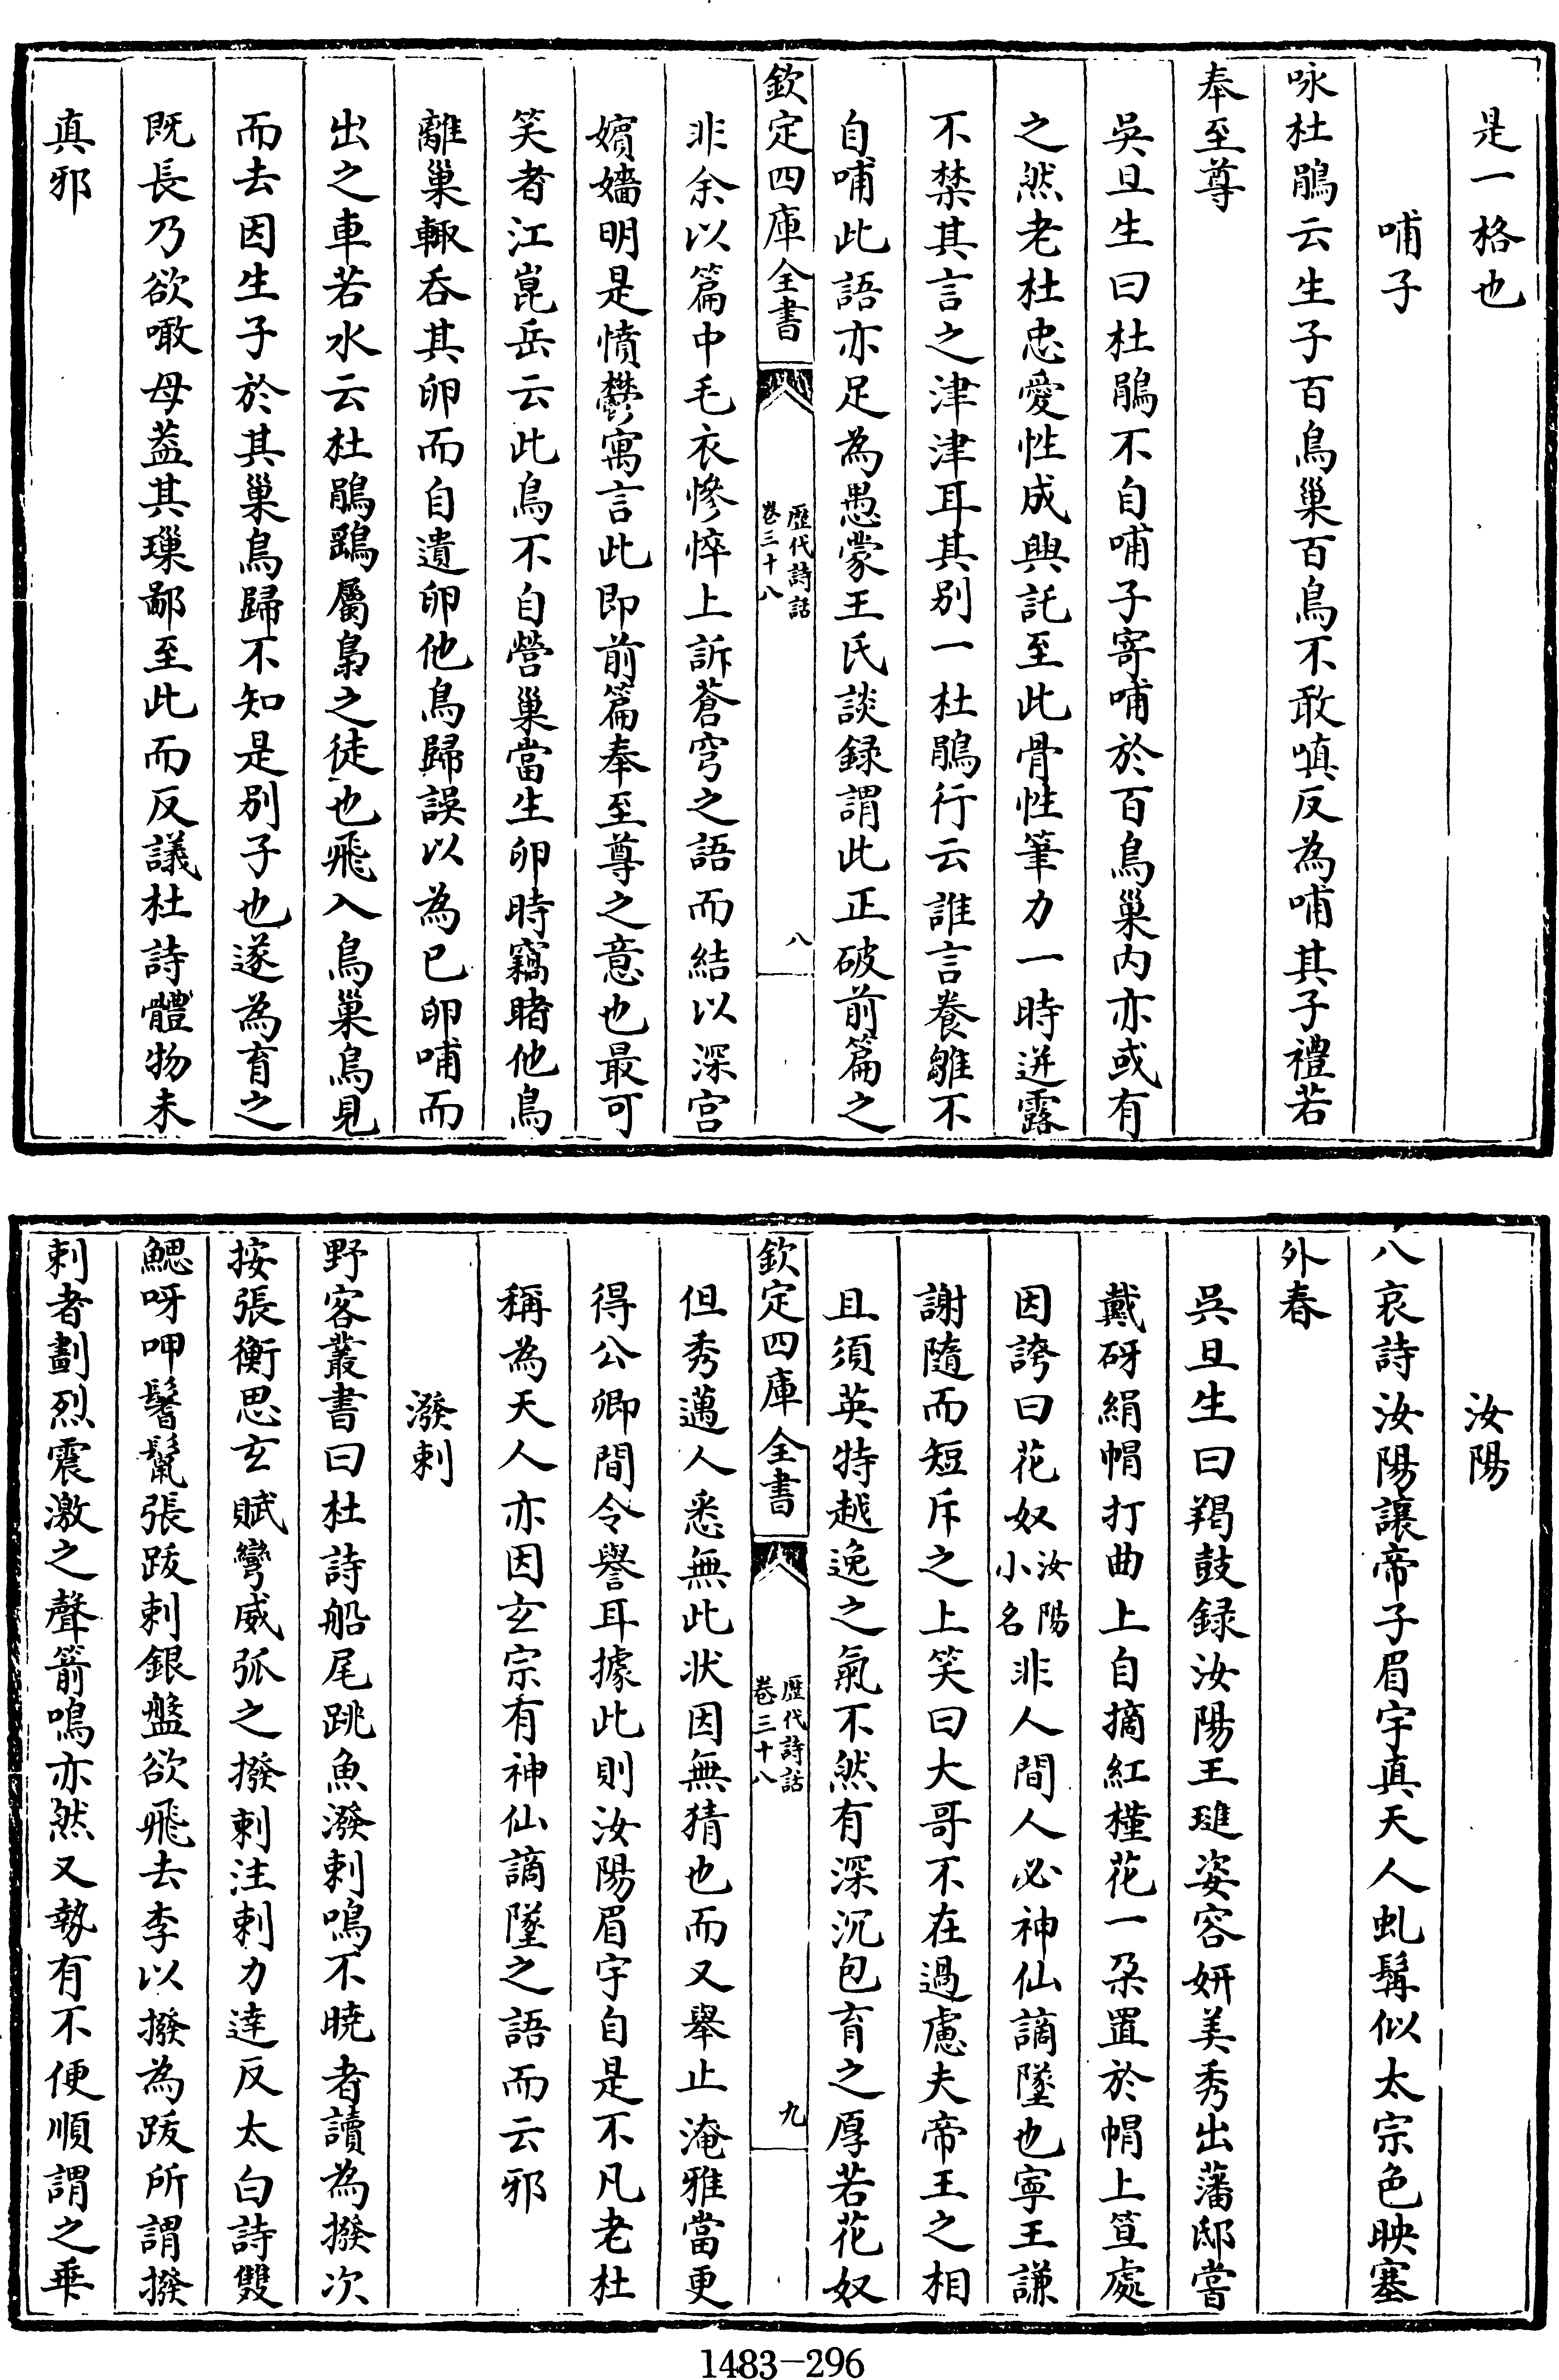 是一格也
哺子
咏杜鵑云生子百鳥巢百鳥不敢嗔反為哺其子禮若
奉至尊
吳旦生曰杜鵑不自哺子寄哺於百鳥巢内亦或有
之然老杜忠愛性成興託至此骨性筆力一時迸露
不禁其言之津津耳其别一杜鵑行云誰言養雛不
自哺此語亦足為愚蒙王氏談録謂此正破前篇之
欽定四庫全書
歷代詩話
卷三十八
八
非余以篇中毛衣慘悴上訴蒼穹之語而結以深宫
嬪嬙明是憤鬱寓言此即前篇奉至尊之意也最可
笑者江崑岳云此鳥不自營巢當生卵時竊睹他鳥
離巢輙呑其卵而自遺卵他鳥歸誤以為已卵哺而
出之車若水云杜鵑鷂屬梟之徒也飛入鳥巢鳥見
而去因生子於其巢鳥歸不知是别子也遂為育之
既長乃欲噉母葢其瓅鄙至此而反議杜詩體物未
真邪
汝陽
八哀詩汝陽讓帝子眉宇真天人虬髯似太宗色映塞
外春
吳旦生曰羯鼓録汝陽王璡姿容妍美秀出藩邸嘗
戴砑絹帽打曲上自摘紅槿花一朶置於帽上笪處
因誇曰花奴汝陽小名非人間人必神仙謫墜也寧王謙
謝隨而短斥之上笑曰大哥不在過慮夫帝王之相
且須英特越逸之氣不然有深沉包育之厚若花奴
欽定四庫全書
歷代詩話
卷三十八
九
但秀邁人悉無此状因無猜也而又舉止淹雅當更
得公卿間令譽耳據此則汝陽眉宇自是不凡老杜
稱為天人亦因玄宗有神仙謫墜之語而云邪
潑剌
野客叢書曰杜詩船尾跳魚潑剌鳴不曉者讀為撥次
按張衡思玄賦彎威弧之撥剌注剌力達反太白詩雙
鰓呀呷鬐鬛張跋剌銀盤欲飛去李以撥為跋所謂撥
剌者劃烈震激之聲箭鳴亦然又埶有不便順謂之乖
1483-296